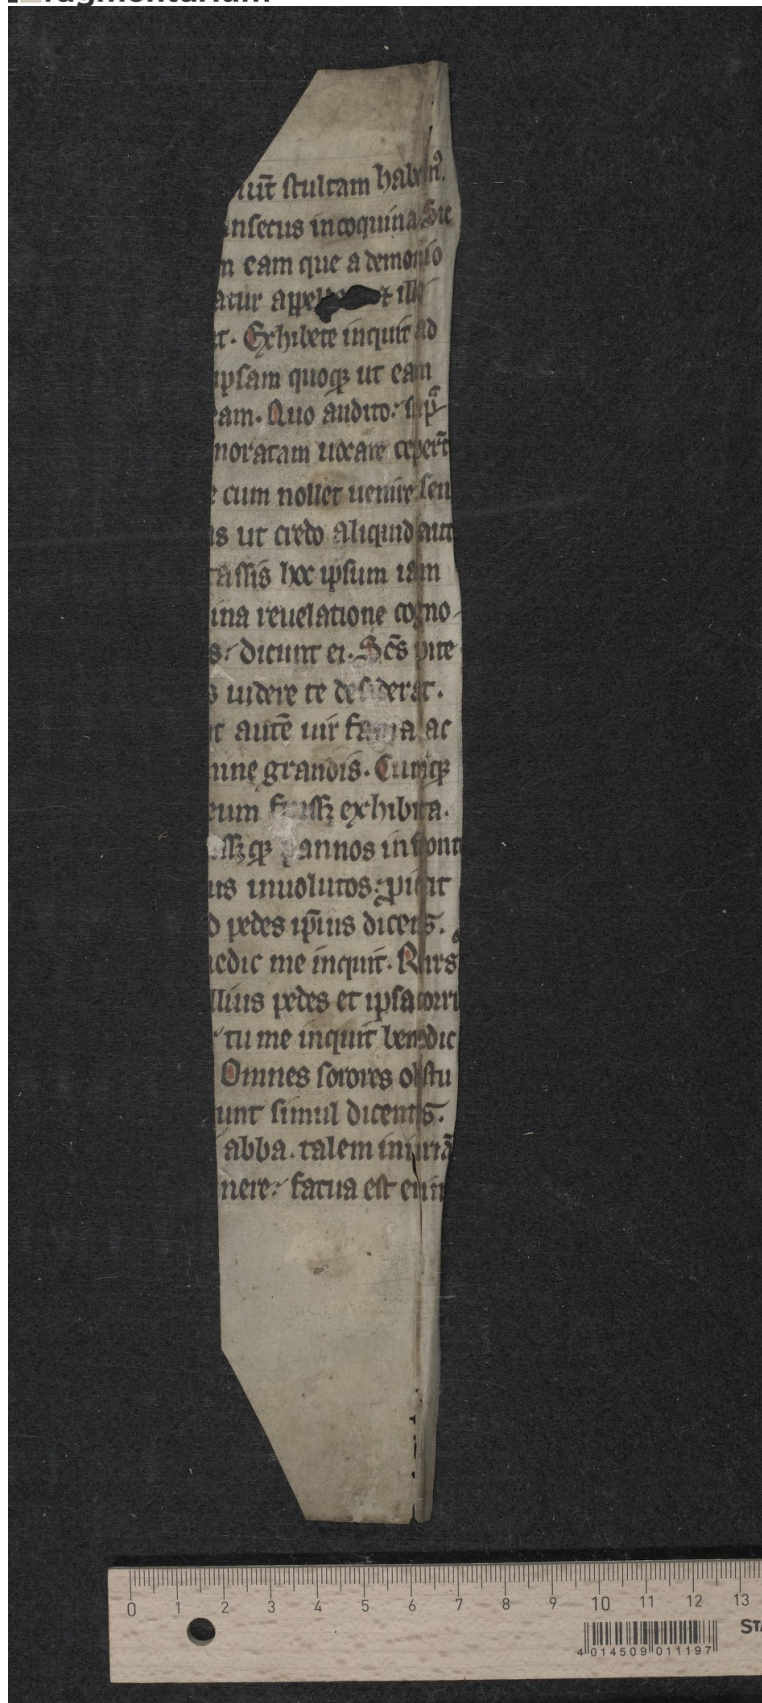 stultam habem᷒.
insecus in coquina. Sic
eam que a demonio
atur ille
Exhibete inquit ad
ipsam quoqꝫ ut eam
eam. Quo audito: sup̄
noratam uocare ceper̄t
cum nollet uenire: sen
ut credo aliquid aut
tassis hoc ipsum iam
ina reuelatione cogno
s: dicunt ei. Sc̄s pite
s uidere te desiderat.
autē uir fama ac
mine grandis. Cumqꝫ
eum fuissꝫ exhibita.
issꝫqꝫ pannos in front
us inuolutos: piecit
d pedes ip̄ius dicens.
nedic me inquit. Rurs᷒
illius pedes et ipsa corri
tu me inquit benedic
Omnes sorores obstu
unt simul dicentes.
abba. talem iniuriā
nere: fatua est enim
0 1 2 3 4 5 6 7 8 9 10 11 12 13
4 014509 011197